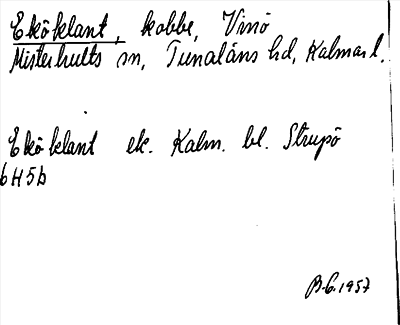 Ekö klant, kobbe, Vinö
Misterhults sn, Tunaläns hd, Kalmar l.
Ekö klant ek. Kalm. bl. Strupö
6H5b
B.G. 1957